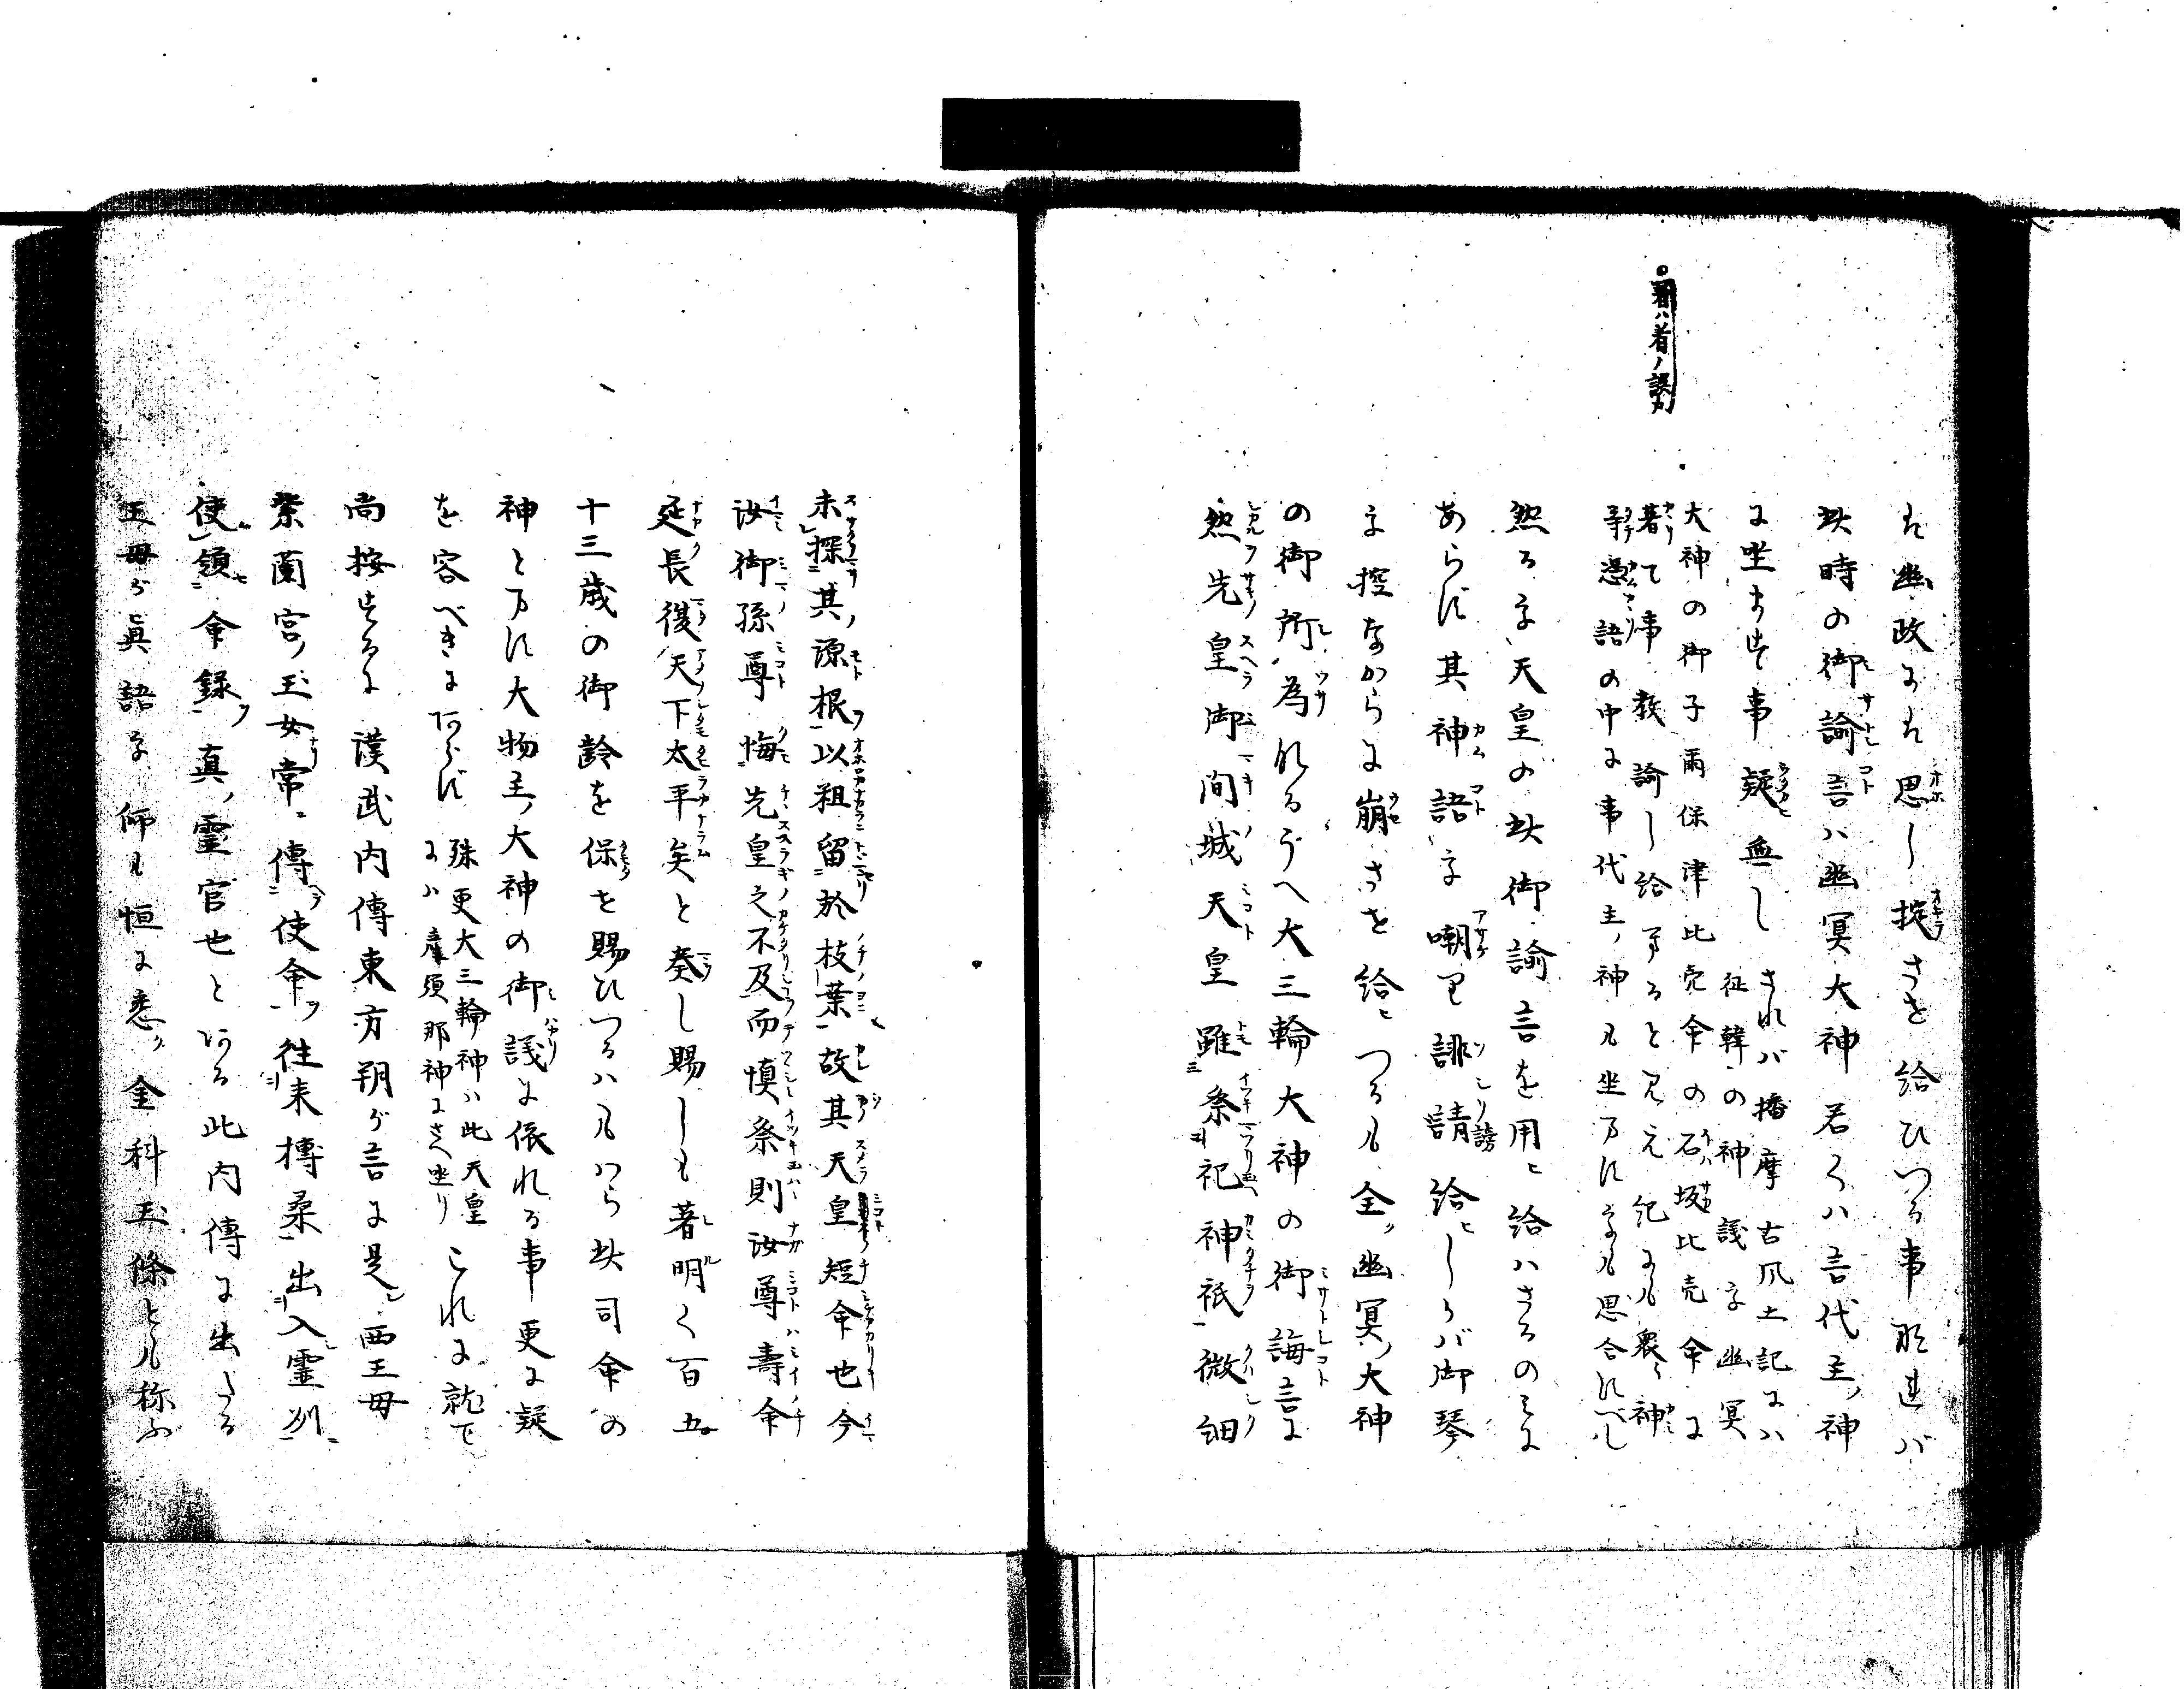 ○著ハ着ノ誤カ
は幽政よは思し掟させ給ひつる事那連バ
此時の御諭言ハ幽冥大神若くハ言代主ノ神
よ坐ますす事疑無し
されバ播摩古風土記よハ
征韓の神議に幽冥
大神の御子爾保津比売命の石坂比売命よ
著て事教諭し給することゝ見え紀よも衆神
等憑語の中よ事代主ノ神も坐すにても思合すべし
然るに天皇の此御諭言を用ヒ給ハさるのミよ
あらず其神語に嘲り誹謗給ヒしうバ御琴
に控ながらよ崩させ給ヒつるも全ク幽冥ノ大神
の御所為れるうへ大三輪大神の御誨言よ
然先皇御間城天皇雖祭祀神祇微細
未探其ノ源根ヲ以粗留於枝葉故其天皇短命也今
汝御孫尊悔先皇之不及而慎祭則汝尊壽命
延長復天下太平矣と奏し賜しも著明く百五
十三歳の御齢を保を賜ひつるハもはら此司命の
神と坐す大物主ノ大神の御議よ依れる事更よ疑
を容べきよあらず
殊更大三輪ノ神ハ此天皇
よハ産須那神よさへ坐り
これよ就て
尚按するよ漢武内傳東方朔ガ言よ是レ西王母
紫蘭宮ノ玉女常ニ傳使命ヲ往来榑桑出入靈州
使領命録ヲ真ノ靈官也とある此内傳よ出たる
王母ガ眞語に仰も恒よ悉ク金科玉條とも称ふ